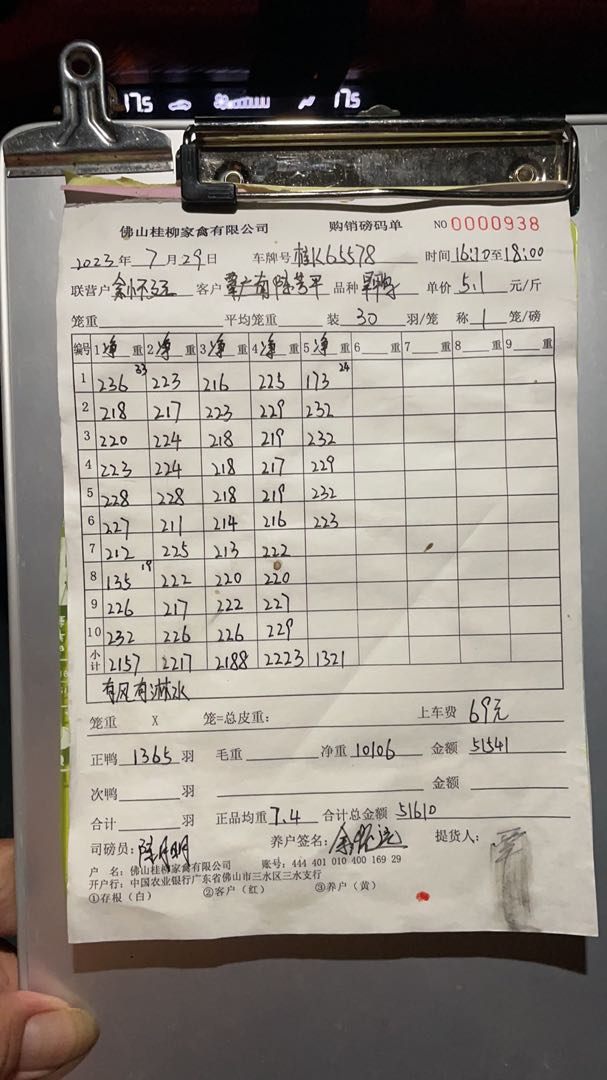 17s 17s
佛山桂柳家禽有限公司 购销磅码单 NO 0000938
2023年 7月29日 车牌号 桂K65578 时间 16:10至18:00
联营户 余怀远 客户 覃广南 陈芳平 品种 单价 5.1 元/斤
笼重 平均笼重 装 30 羽/笼 称 1 笼/磅
编号 1净重 2净重 3净重 4净重 5净重 6重 7重 8重 9重
1 236 33 223 216 225 173 24
2 218 217 223 229 232
3 220 224 218 219 232
4 223 224 218 217 229
5 228 228 218 219 232
6 227 211 214 216 223
7 212 225 213 222
8 135 19 222 220 220
9 226 217 222 227
10 232 226 226 229
小计 2157 2217 2188 2223 1321
有风有淋水
笼重 X 笼=总皮重: 上车费 69元
正鸭 1365 羽 毛重 净重 10106 金额 51541
次鸭 羽 金额
合计 羽 正品均重 7.4 合计总金额 51610
司磅员: 陈月明 养户签名: 余怀远 提货人: 覃
户 名: 佛山桂柳家禽有限公司 账号: 444 401 010 400 169 29
开户行: 中国农业银行广东省佛山市三水区三水支行
①存根（白） ②客户（红） ③养户（黄）